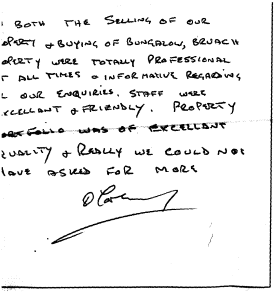 BOTH THE SELLING OF OUR
OPERTY & BUYING OF BUNGALOW, BRUACH
OPERTY WERE TOTALLY PROFESSIONAL
T ALL TIMES & INFORMATIVE REGARDING
L OUR ENQUIRIES. STAFF WERE
XCELLANT & FRIENDLY. PROPERTY
ORTFOLIO WAS OF EXCELLANT
QUALITY & REALLY WE COULD NOT
HAVE ASKED FOR MORE